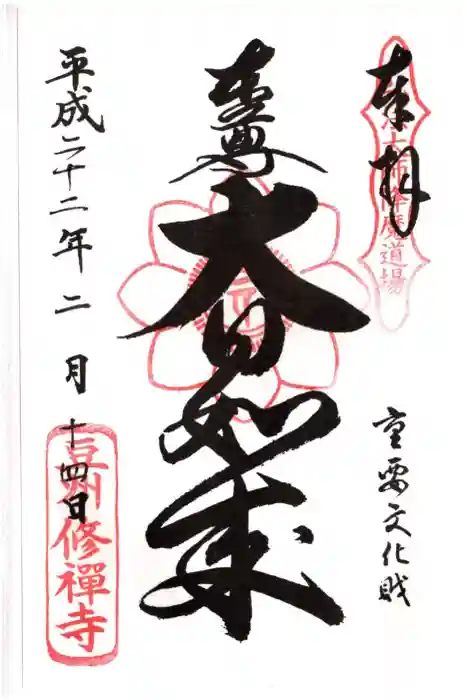 奉拝
大師降魔道場
重要文化財
本尊
大日如来
平成二十二年二月十四日
豆州修禪寺